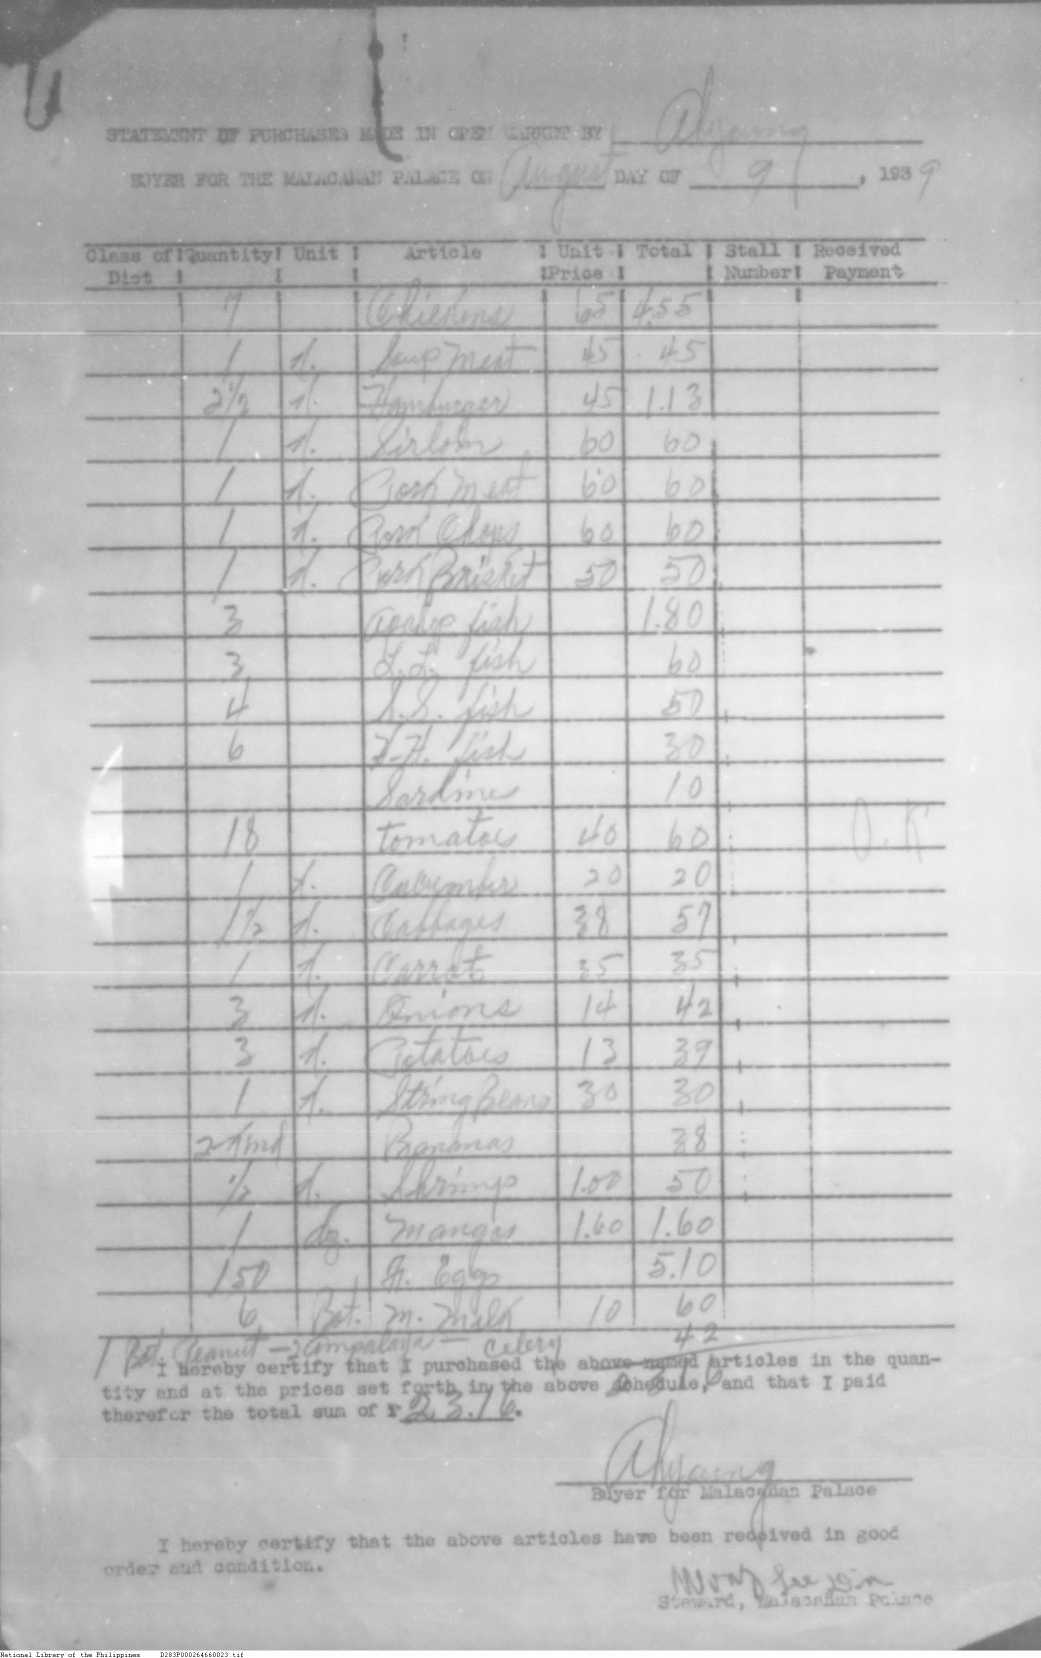 STATEMENT OF PURCHASES MADE IN OPEN MARKET BY Ahyaung
BUYER FOR THE MALACAÑAN PALACE ON August DAY OF 9, 1939
Class of Dist Quantity Unit Article Unit Price Total Stall Number Received Payment
7 Chickens 65 4.55
1 k. Soup Meat 45 45
2 1/2 k. Hamburger 45 1.13
1 k. Sirloin 60 60
1 k. Pork Meat 60 60
1 k. Pork Chops 60 60
1 k. Pork Brisket 50 50
3 fish 1.80
3 L.L. fish 60
4 S.S. fish 50
6 fish 30
Sardines 10
18 tomatoes 40 60 O.K.
1 k. Cucumber 20 20
1 1/2 k. Cabbages 38 57
1 k. Carrot 35 35
3 k. Onions 14 42
3 k. Potatoes 13 39
1 k. String Beans 30 30
2 Bananas 38
1/2 k. Shrimps 1.00 50
1 dz. Mangos 1.60 1.60
150 Eggs 5.10
6 Bot. M. Milk 10 60
1 Bot. Peanut – 2 – Celery 42
I hereby certify that I purchased the above named articles in the quan-
tity and at the prices set forth in the above schedule, and that I paid
therefor the total sum of ₱ 23.16.
Ahyaung
Buyer for Malacañan Palace
I hereby certify that the above articles have been received in good
order and condition.
Steward, Malacañan Palace
National Library of the Philippines D283P000264660023.tif